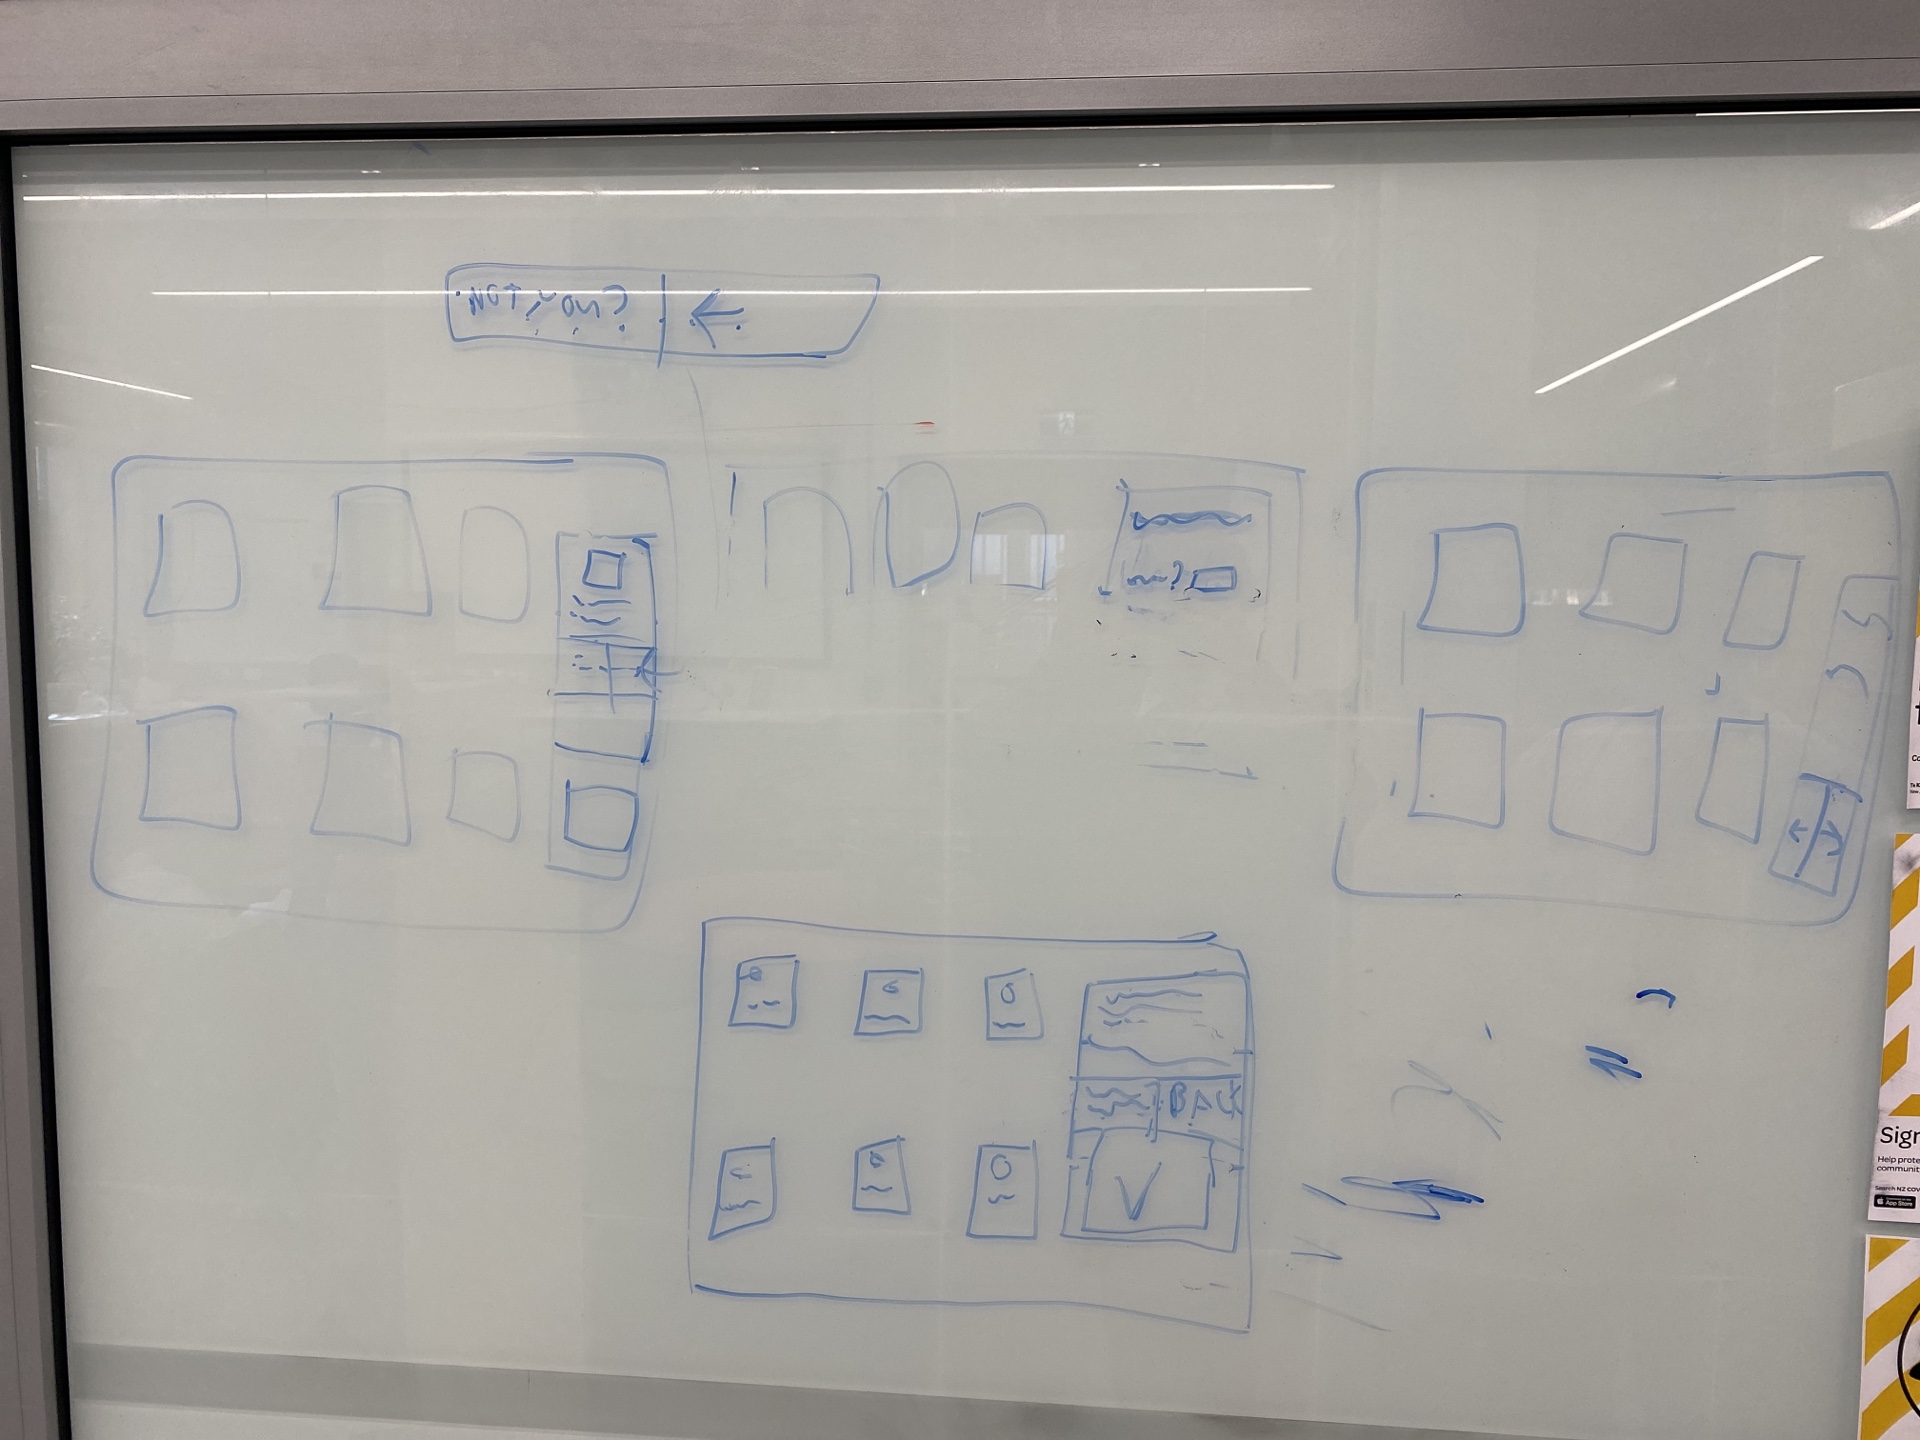 Not you? ←
?
BACK
Sign
Help prote
communit
Search NZ COV
App Store